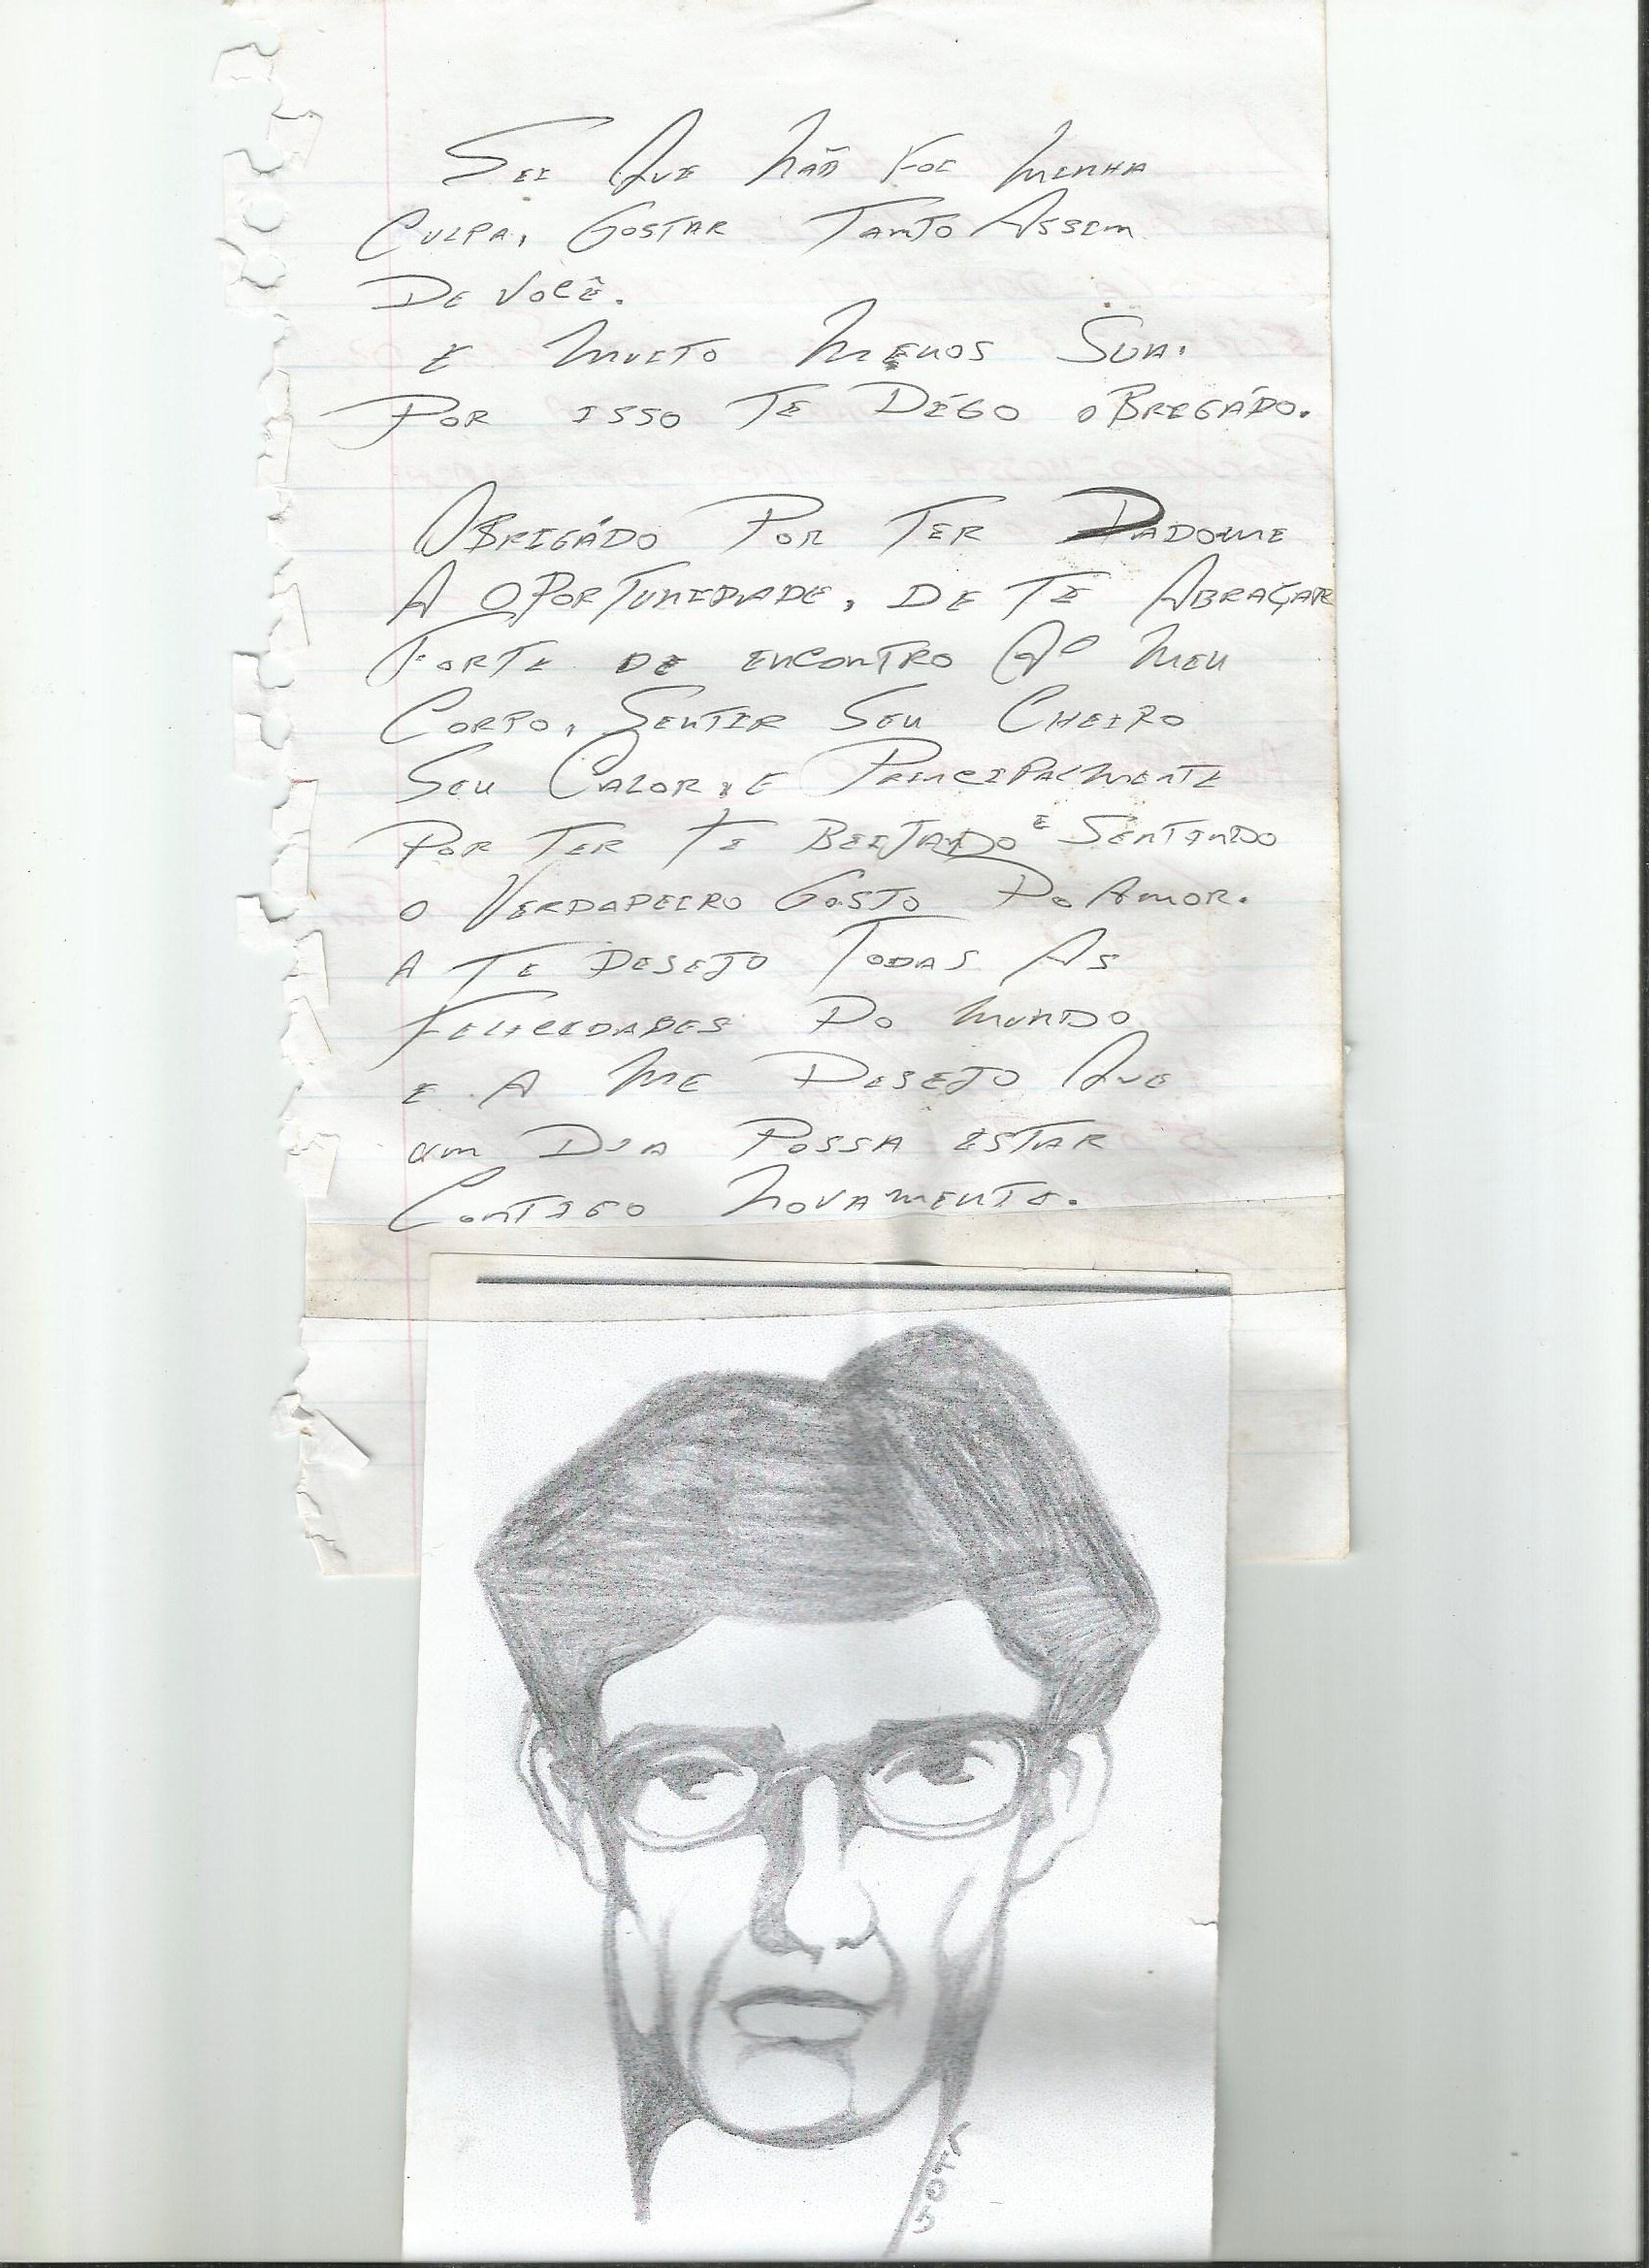 SEI QUE NÃO FOI MINHA
CULPA, GOSTAR TANTO ASSIM
DE VOCÊ.
E MUITO MENOS SUA.
POR ISSO TE DIGO OBRIGÁDO.
OBRIGÁDO POR TER DADOME
A OPORTUNIDADE, DE TE ABRAÇAR
FORTE DE ENCONTRO AO MEU
CORPO, SENTIR SEU CHEIRO
SEU CALOR, E PRINCIPALMENTE
POR TER TE BEIJANDO E SENTINDO
O VERDADEIRO GOSTO DO AMOR.
A TE DESEJO TODAS AS
FELICIDADES DO MUNDO
E A ME DESEJO QUE
UM DIA POSSA ESTAR
CONTIGO NOVAMENTE.